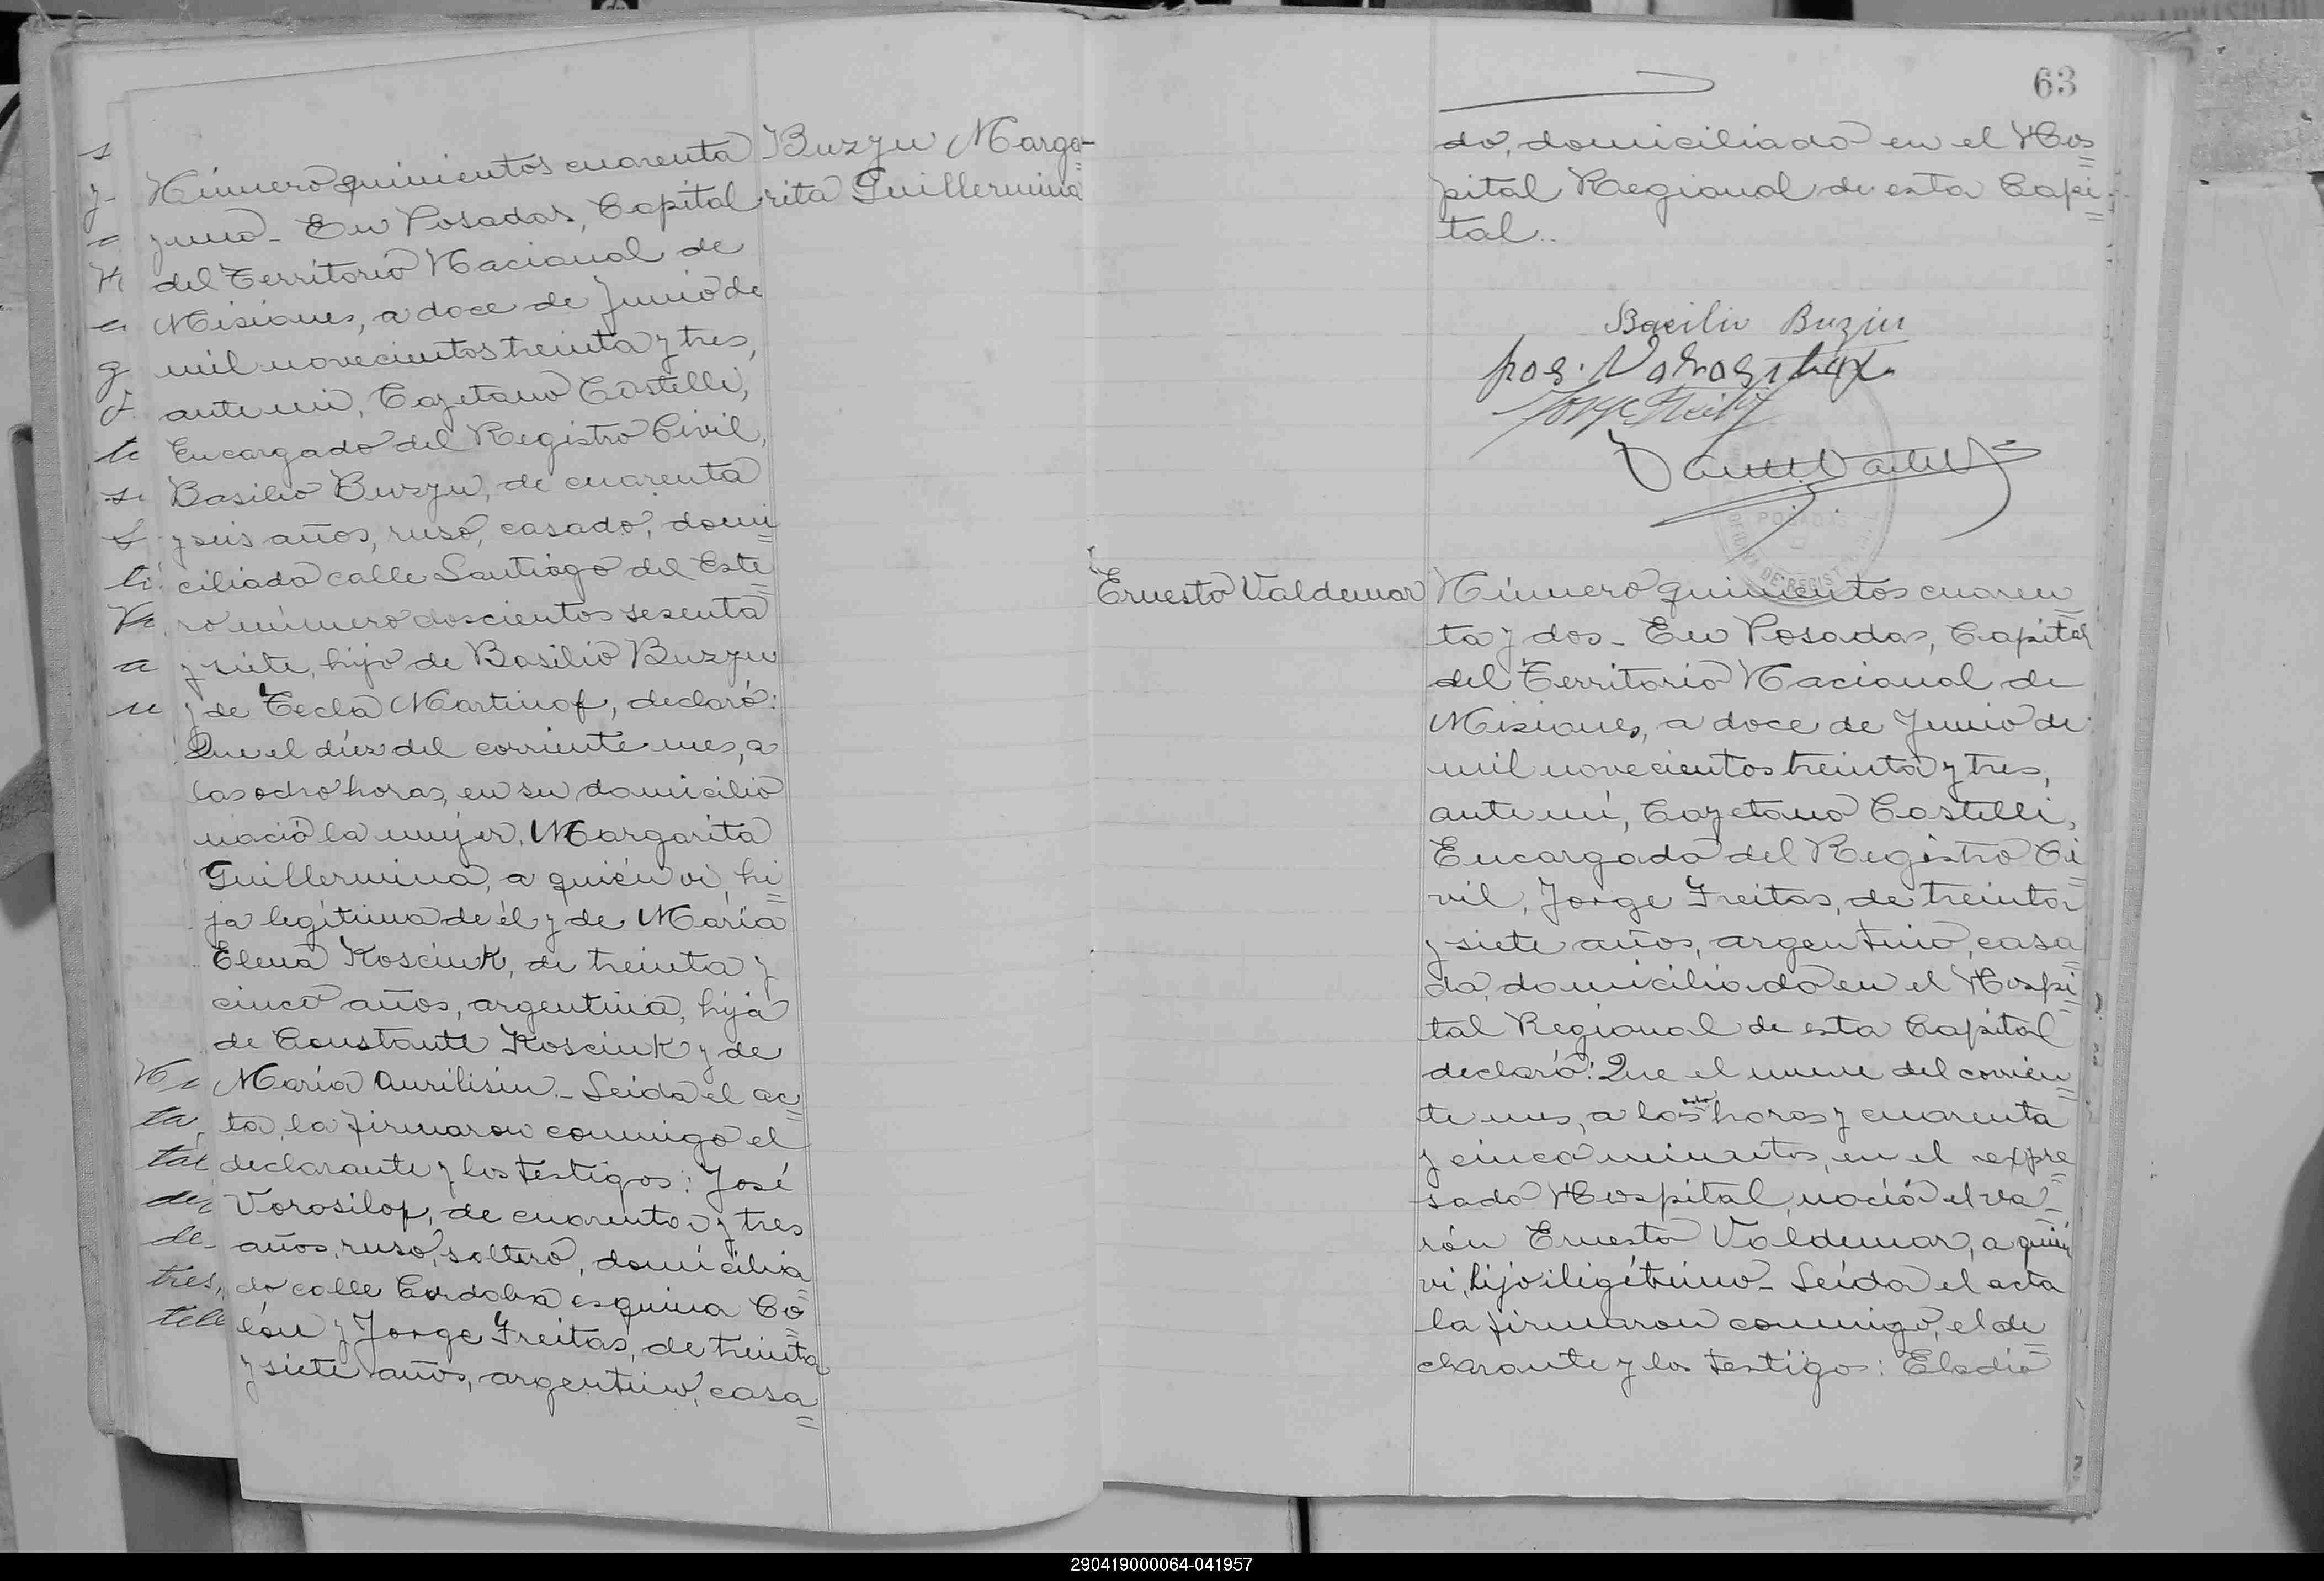 Buzyu Marga-
rita Guillermina
Número quinientos cuarenta
y uno - En Posadas, Capital
del Territorio Nacional de
Misiones, a doce de Junio de
mil novecientos treinta y tres,
ante mi, Cayetano Castelli,
Encargado del Registro Civil,
Basilio Buzyu, de cuarenta
y seis años, ruso, casado, domi=
ciliado calle Santiago del Este=
ro número doscientos sesenta
y siete, hijo de Basilio Buzyu
y de Tecla Martinof, declaró:
Que el díez del corriente mes, a
las ocho horas, en su domicilio
nació la mujer, Margarita
Guillermina, a quién vi, hi=
ja legítima de él y de María
Elena Kosciuk, de treinta y
cinco años, argentina, hija
de Constante Kosciuk y de
María Aurilisin. - Leida el ac=
ta, la firmaron conmigo el
declarante y los testigos: José
Vorosilof, de cuarenta y tres
años, ruso, soltero, domicilia=
do calle Cordoba esquina Co=
lón y Jorge Freitas, de treinta
y siete años, argentino, casa=
63
do, domiciliado en el Hos=
pital Regional de esta Capi=
tal..
Basilio Buzin
Jorge Freitas
POSADAS
Ernesto Valdemar
Número quinientos cuaren=
ta y dos - En Posadas, Capital
del Territorio Nacional de
Misiones, a doce de Junio de
mil novecientos treinta y tres,
ante mí, Cayetano Castelli,
Encargado del Registro Ci=
vil, Jorge Freitas, de treinta
y siete años, argentino, casa=
do, domiciliado en el Hospi=
tal Regional de esta Capital
declaró: Que el nueve del corrien=
te mes, a las ocho horas y cuarenta
y cinco minutos, en el expre=
sado Hospital, nació el va=
rón Ernesto Valdemar, a quién
vi, hijo iligétimo - Leída el acta
la firmaron conmigo, el de=
clarante y los testigos: Eladio
290419000064-041957